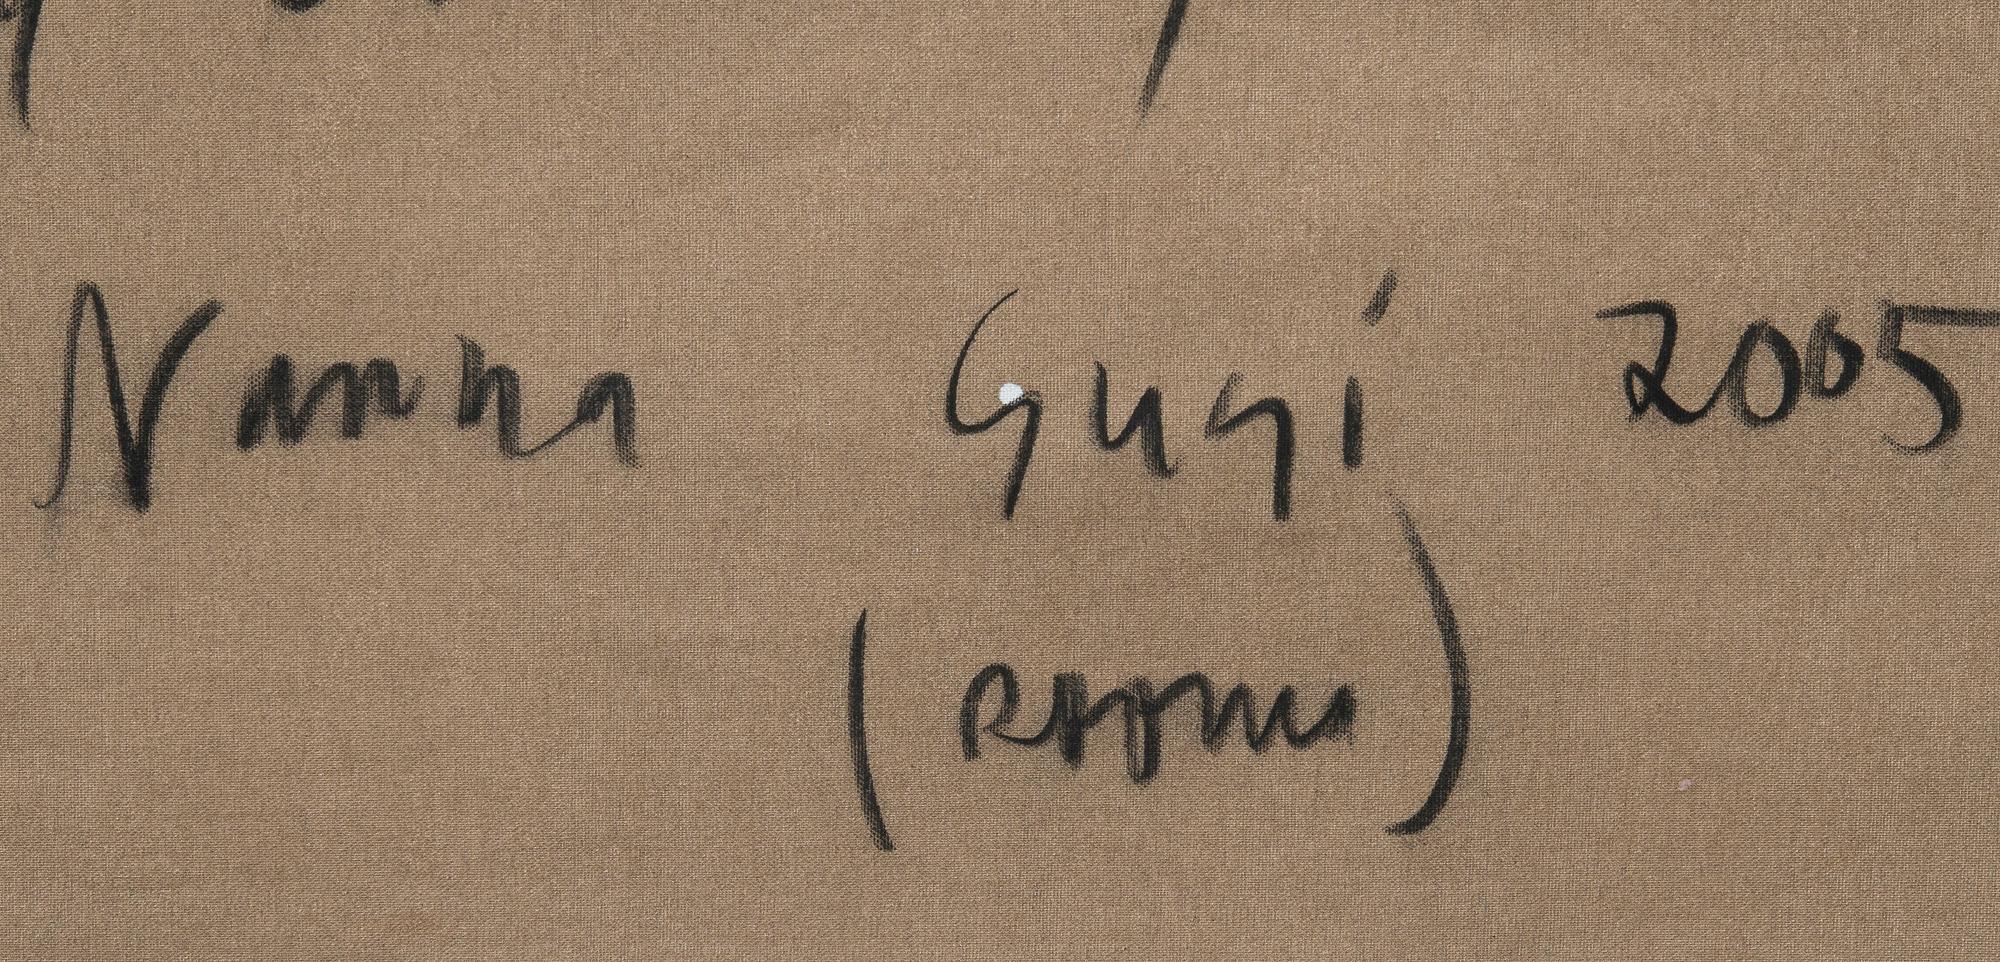 Nanna Gugi 2005
(Roma)